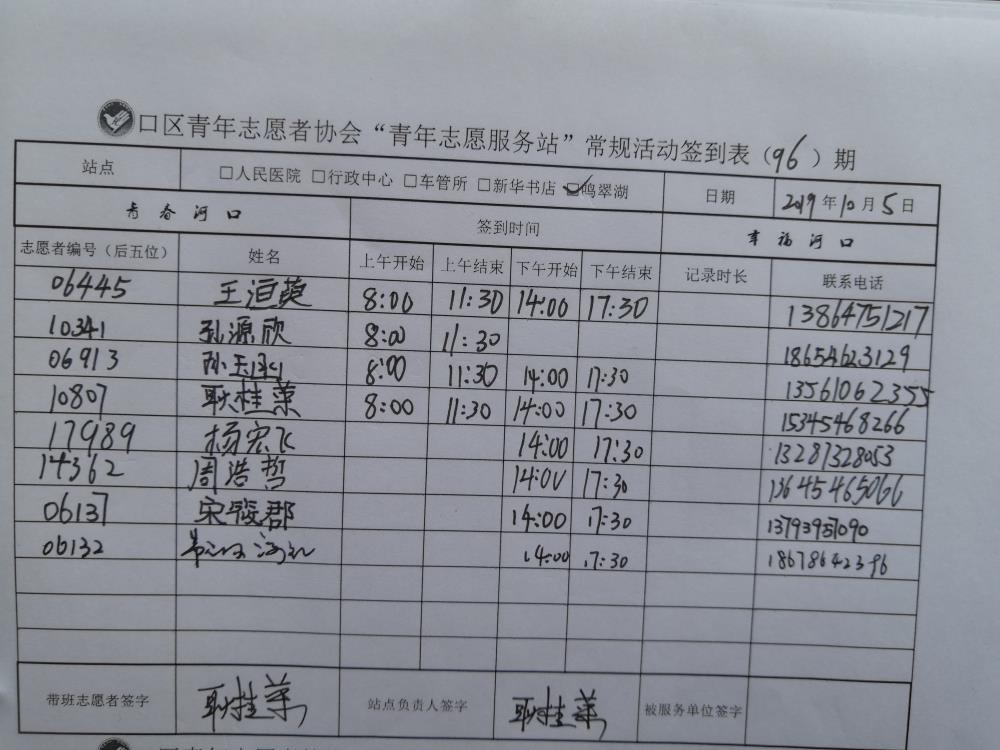 口区青年志愿者协会“青年志愿服务站”常规活动签到表（96）期
站点 □人民医院 □行政中心 □车管所 □新华书店 ☑鸣翠湖 日期 2019年10月5日
青春河口 签到时间 幸福河口
志愿者编号（后五位） 姓名 上午开始 上午结束 下午开始 下午结束 记录时长 联系电话
06445 王洹 8:00 11:30 14:00 17:30 13864751217
10341 孙源欣 8:00 11:30 18654623129
06913 孙玉 8:00 11:30 14:00 17:30 13561062355
10807 耿桂菜 8:00 11:30 14:00 17:30 15345468266
17989 杨宏飞 14:00 17:30 13287328053
14362 周浩哲 14:00 17:30 13645465066
06137 宋骏郡 14:00 17:30 13793957090
06132 14:00 17:30 18678642396
带班志愿者签字 耿桂菜 站点负责人签字 耿桂菜 被服务单位签字